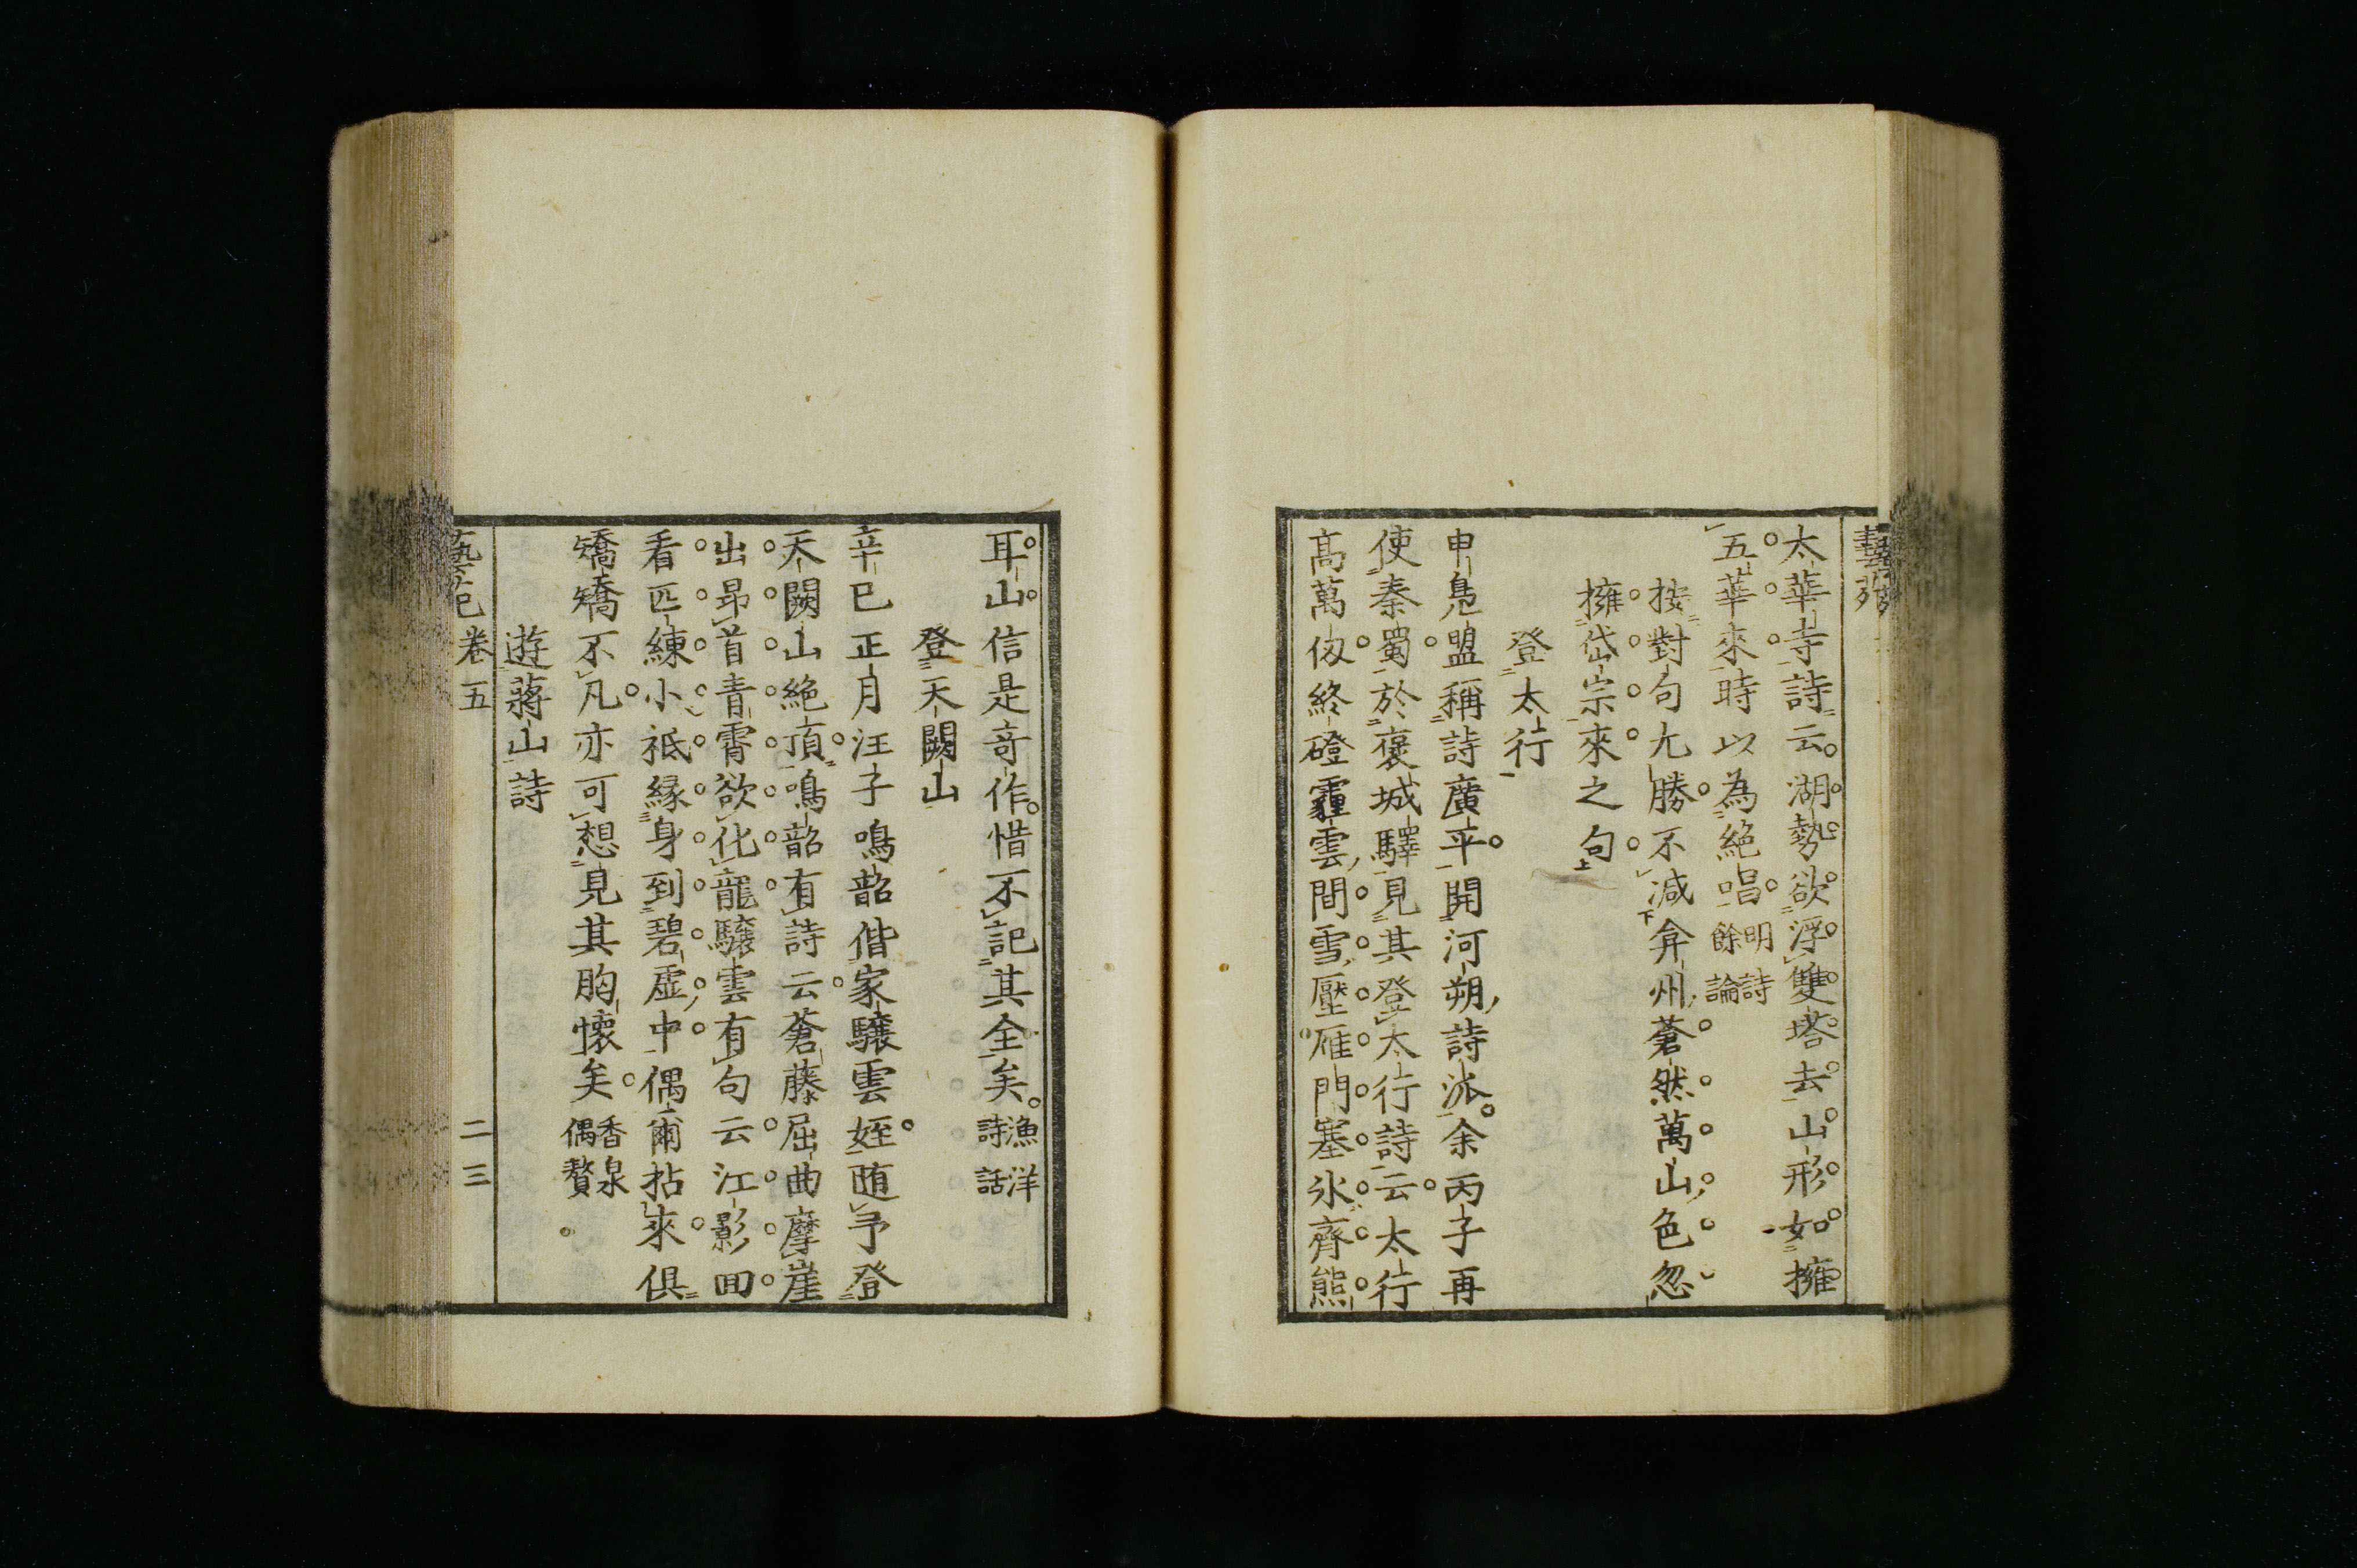 藝苑
太華寺詩云湖勢欲浮雙塔去山形如擁
五華來時以為絶唱明詩餘論
按對句尢勝不減弇州蒼然萬山色忽
擁岱宗來之句
登太行
申鳧盟稱詩廣平開河朔詩派余丙子再
使秦蜀於褒城驛見其登太行詩云太行
髙萬仭終磴霾雲間雪壓雁門塞氷齊熊
耳山信是竒作惜不記其全矣漁洋詩話
登天闕山
辛巳正月汪子鳴韶偕家驤雲姪随予登
天闕山絶頂鳴韶有詩云蒼藤屈曲摩崖
出昂首青霄欲化龍驤雲有句云江影囬
看匹練小袛縁身到碧虚中偶爾拈來俱
矯矯不凡亦可想見其胷懷矣香泉偶贅
遊蔣山詩
藝苑卷五 二三